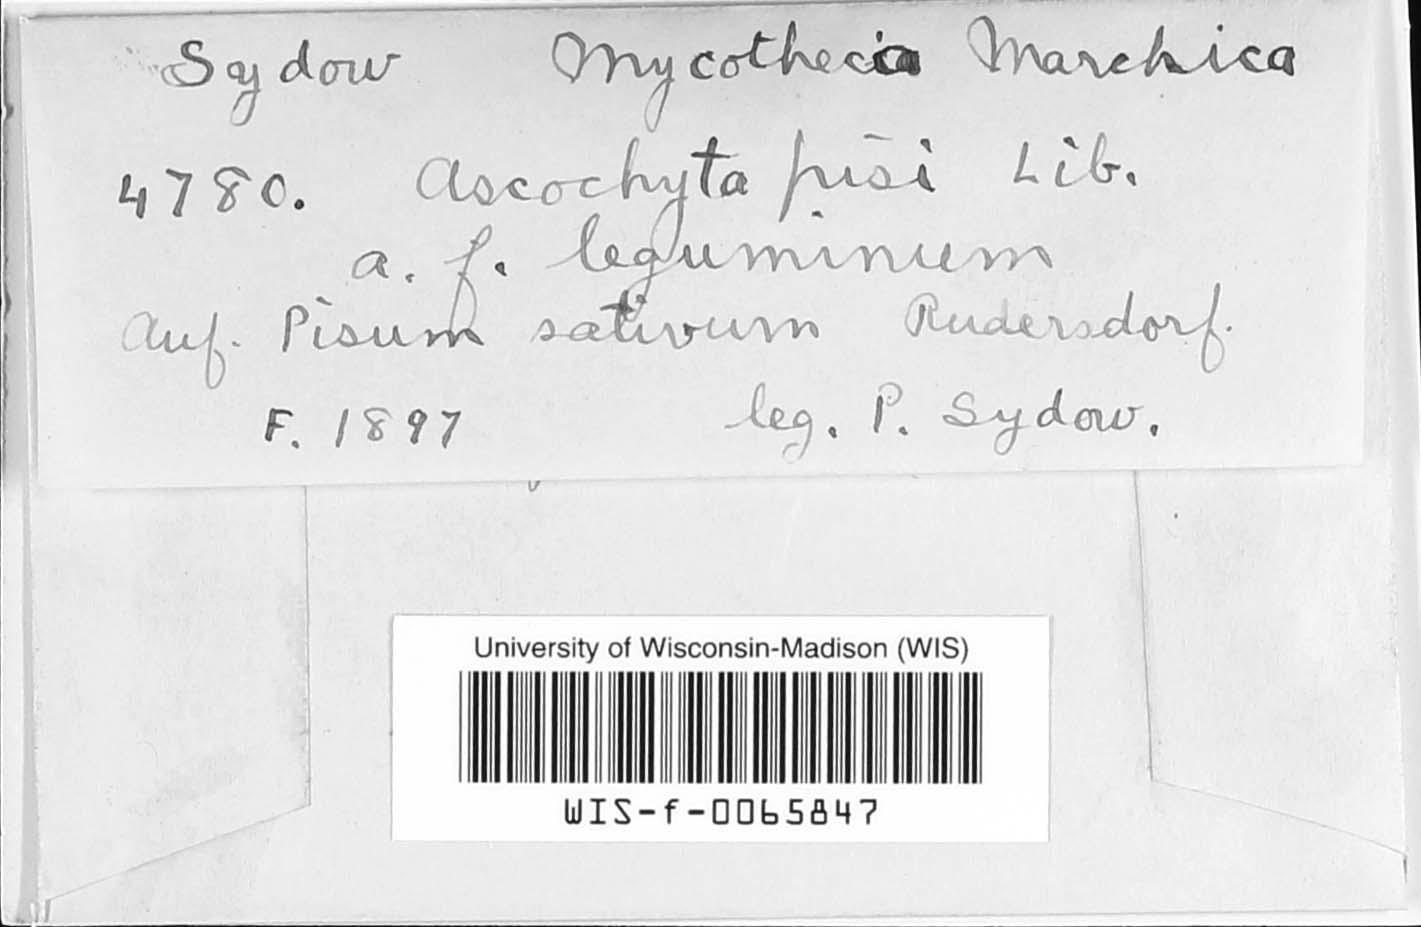 Sydow Mycotheca Marchica
4780. Ascochyta pisi Lib.
a. f. leguminum
Auf. Pisum sativum Rudersdorf.
F. 1897 leg. P. Sydow.
University of Wisconsin-Madison (WIS)
WIS-f-0065847